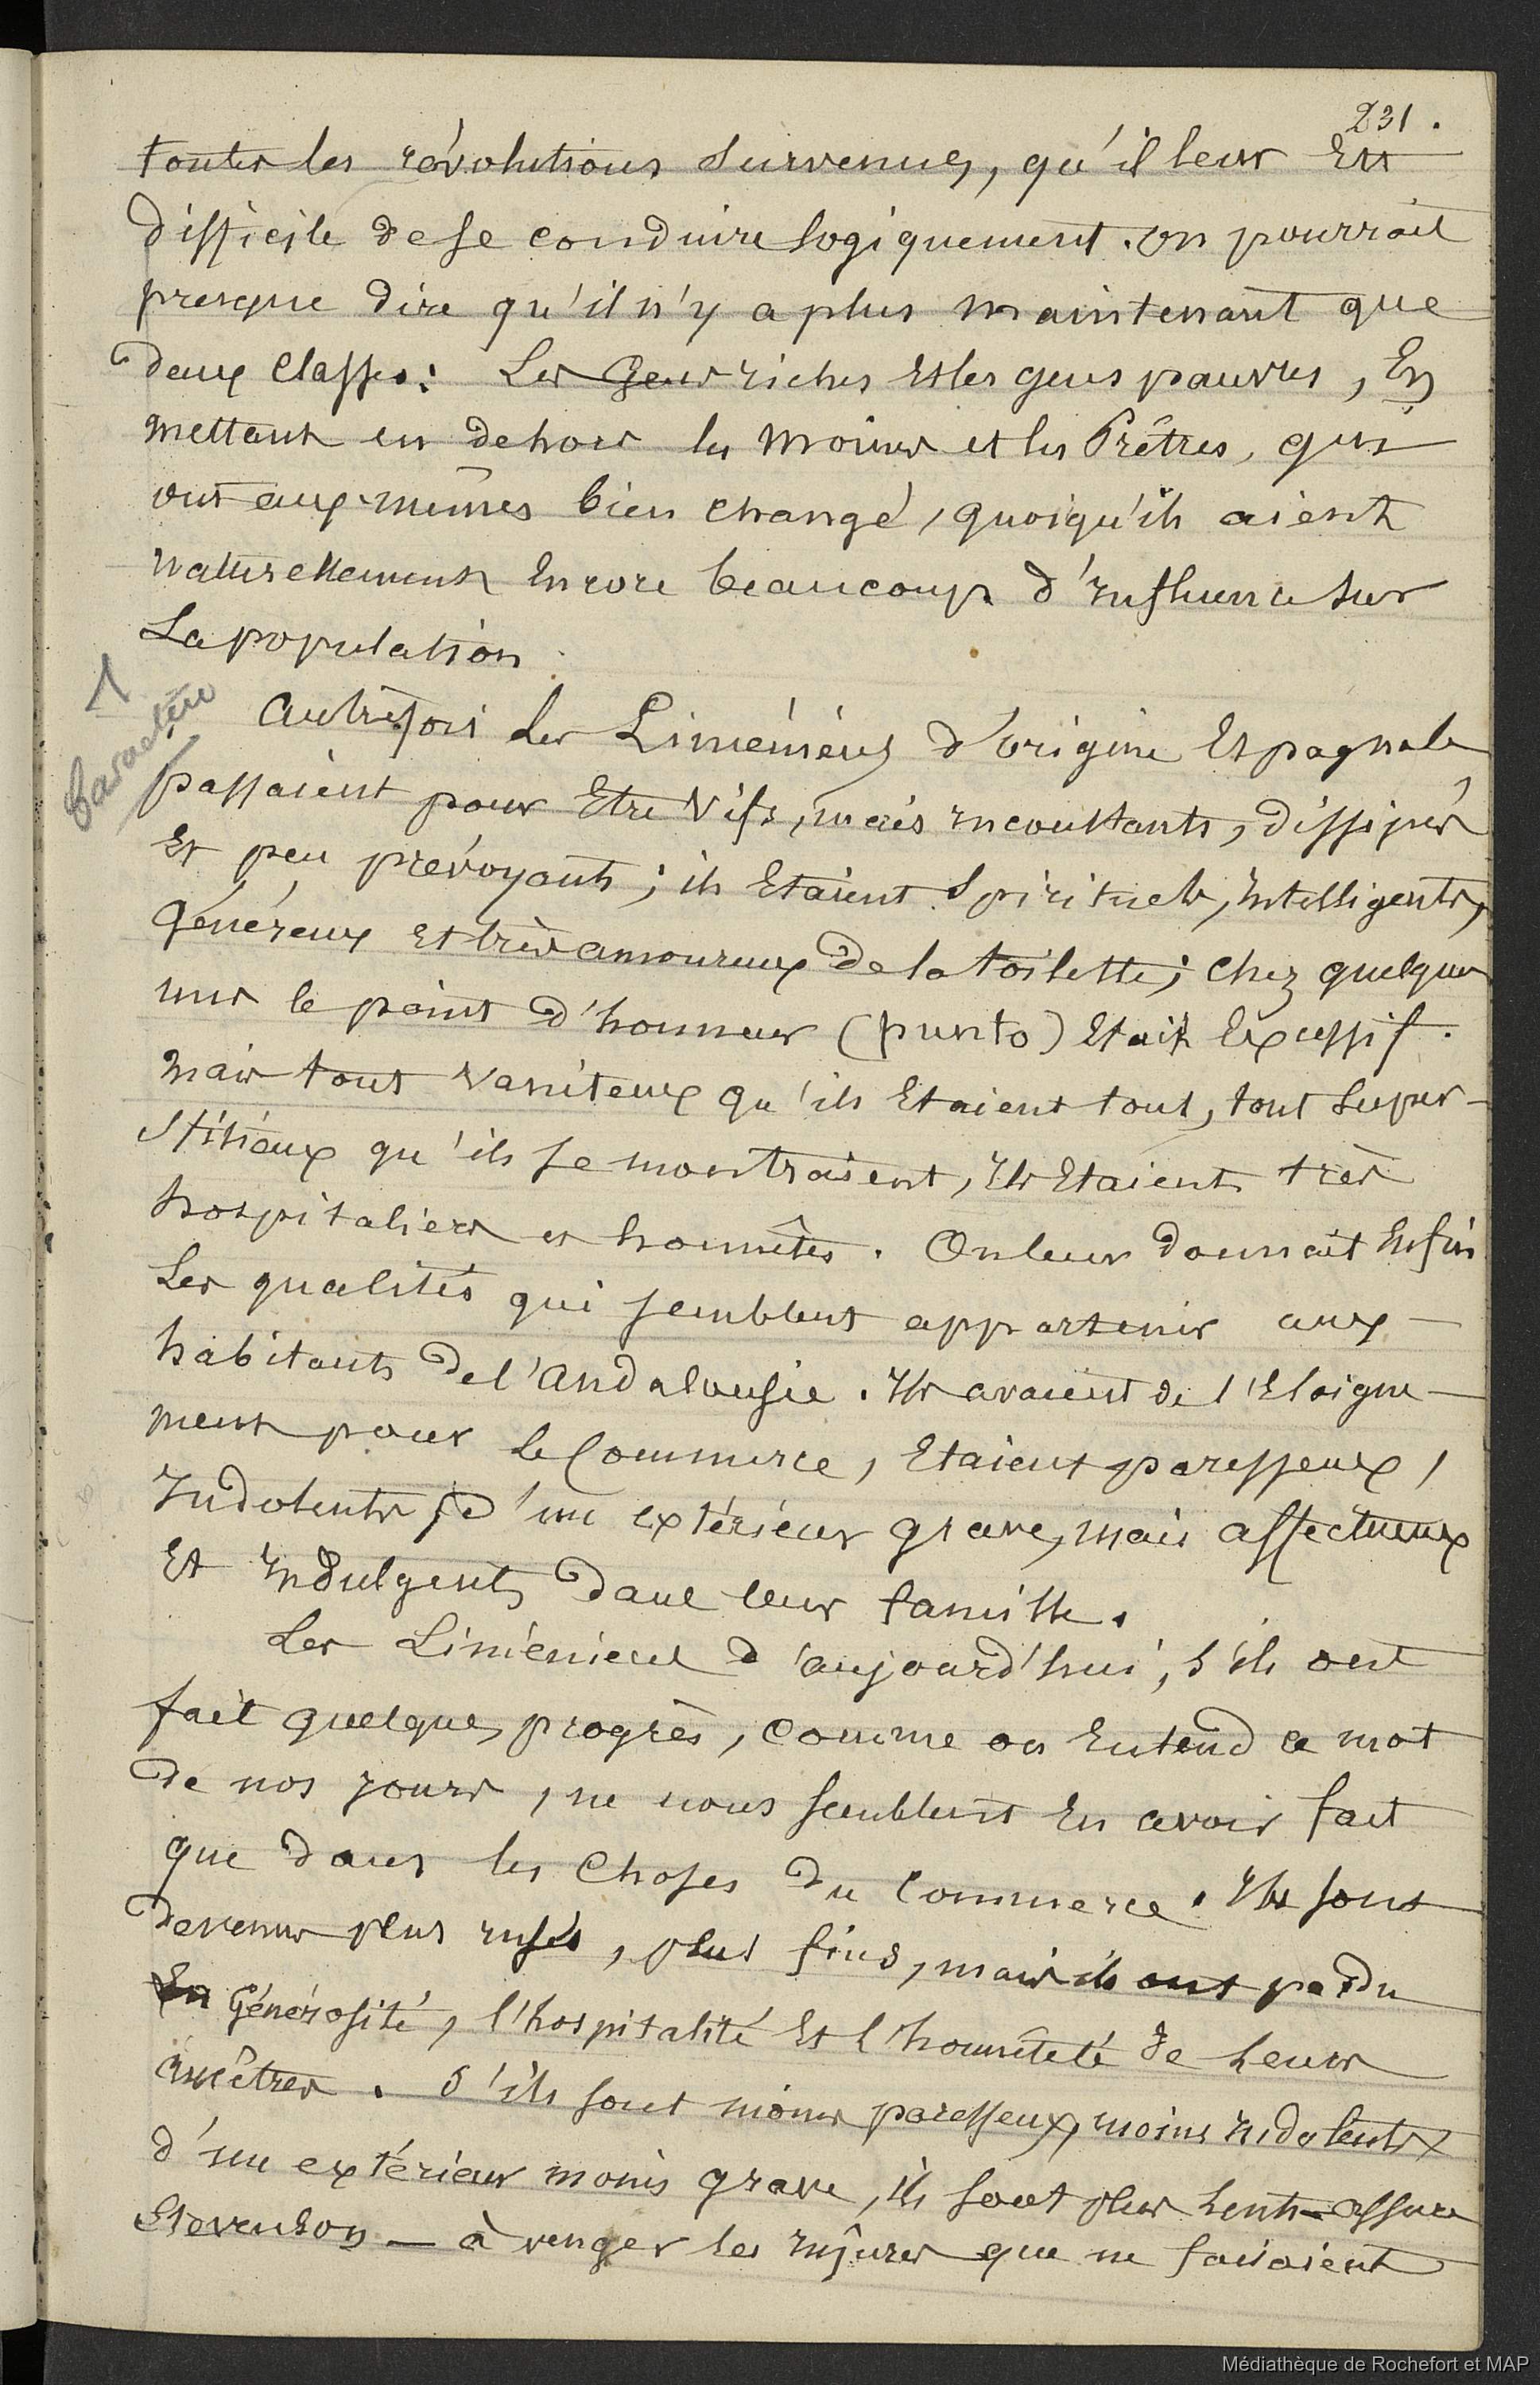 231.
toutes les révolutions survenues, qu'il leur Est
difficile de se conduire logiquement. on pourrait
presque dire qu'il n'y a plus maintenant que
deux Classes: Les Gens riches et les gens pauvres, En
mettant en dehors les Moines et les Prêtres, qui
ont eux-mêmes bien changé, quoiqu'ils aient
naturellement Encore beaucoup d'influence sur
La population.
1
Caractère
Autrefois Les Liméniens d'origine Espagnole
passaient pour Etre Vifs, mais inconstants, dissipés
Et peu prévoyants; ils Etaient Spirituels, intelligents,
Généreux Et très amoureux de la toilette; Chez quelques
uns le point d'honneur (punto) Etait Excessif.
Mais tout vaniteux qu'ils Etaient tous, tout super-
stitieux qu'ils se montraient, Ils Etaient très
hospitaliers et honnêtes. On leur donnait Enfin
Les qualités qui semblent appartenir aux
habitants de l'Andalousie. Ils avaient de l'Eloigne-
ment pour le Commerce, Etaient paresseux,
Indolents, d'un extérieur grave, mais affectueux
Et Indulgents dans leur famille.
Les Liméniens d'aujourd'hui, s'ils ont
fait quelques progrès, comme on Entend ce mot
de nos jours, ne nous semblent En avoir fait
que dans les Choses du Commerce. Ils sont
devenus plus rusés, plus fins, mais ils ont perdu
En Générosité, l'hospitalité Et l'honnêteté de Leurs
ancêtres. S'ils sont moins paresseux, moins indolents
d'un extérieur moins grave, ils sont plus Lents - assure
Stevenson - à venger les injures que ne faisaient
Médiathèque de Rochefort et MAP